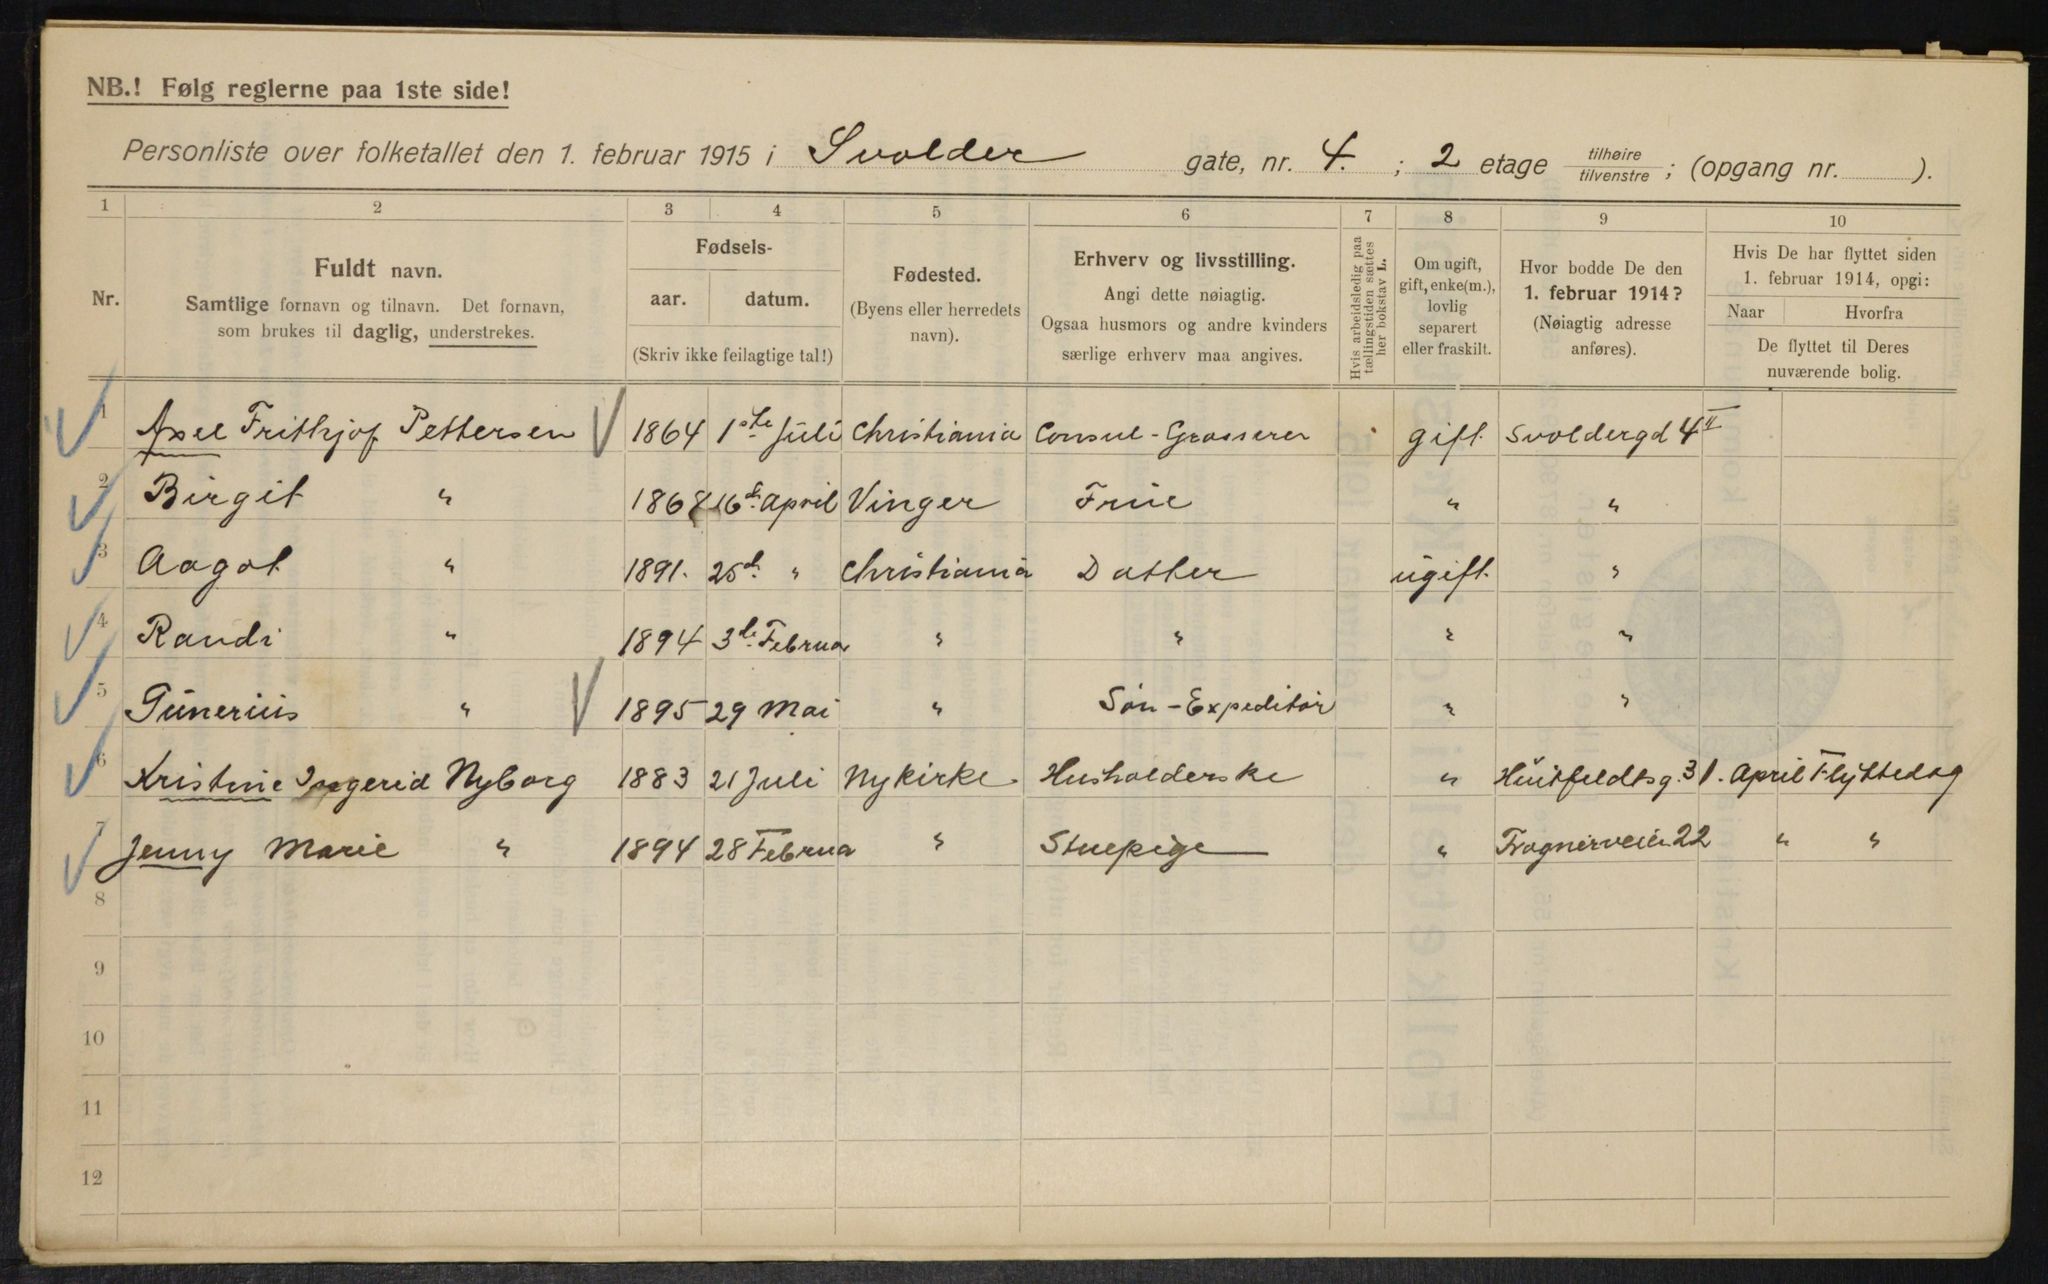 NB.! Følg reglerne paa 1ste side!
Personliste over folketallet den 1. februar 1915 i Svolder gate, nr. 4. ; 2 etage tilhøire tilvenstre ; (opgang nr. ).
1 2 3 4 5 6 7 8 9 10
Nr.
Fuldt navn.
Samtlige fornavn og tilnavn. Det fornavn,
som brukes til daglig, understrekes.
Fødsels-
aar. datum.
(Skriv ikke feilagtige tal!)
Fødested.
(Byens eller herredets
navn).
Erhverv og livsstilling.
Angi dette nøiagtig.
Ogsaa husmors og andre kvinders
særlige erhverv maa angives.
Hvis arbeidsledig paa
tællingstiden sættes
her bokstav L.
Om ugift,
gift, enke(m.),
lovlig
separert
eller fraskilt.
Hvor bodde De den
1. februar 1914?
(Nøiagtig adresse
anføres).
Hvis De har flyttet siden
1. februar 1914, opgi:
Naar Hvorfra
De flyttet til Deres
nuværende bolig.
1 Axel Frithjof Pettersen 1864 1ste Juli Christiania Consul - Grosserer gift Svoldergd 4 II
2 Birgit " 1868 16d. april Vinger Frue " "
3 Aagot " 1891. 25d. " Christiania Datter ugift "
4 Randi " 1894 3de Februa " " " "
5 Gunerius " 1895 29 Mai " Søn - Expeditør " "
6 Kristine Ingerid Nyborg 1883 21 Juli Nykirke Husholderske " Huitfeldtsg. 31. April Flyttedag
7 Jenny Marie " 1894 28 Februa " Stuepige " Frognerveien 22 " "
8
9
10
11
12